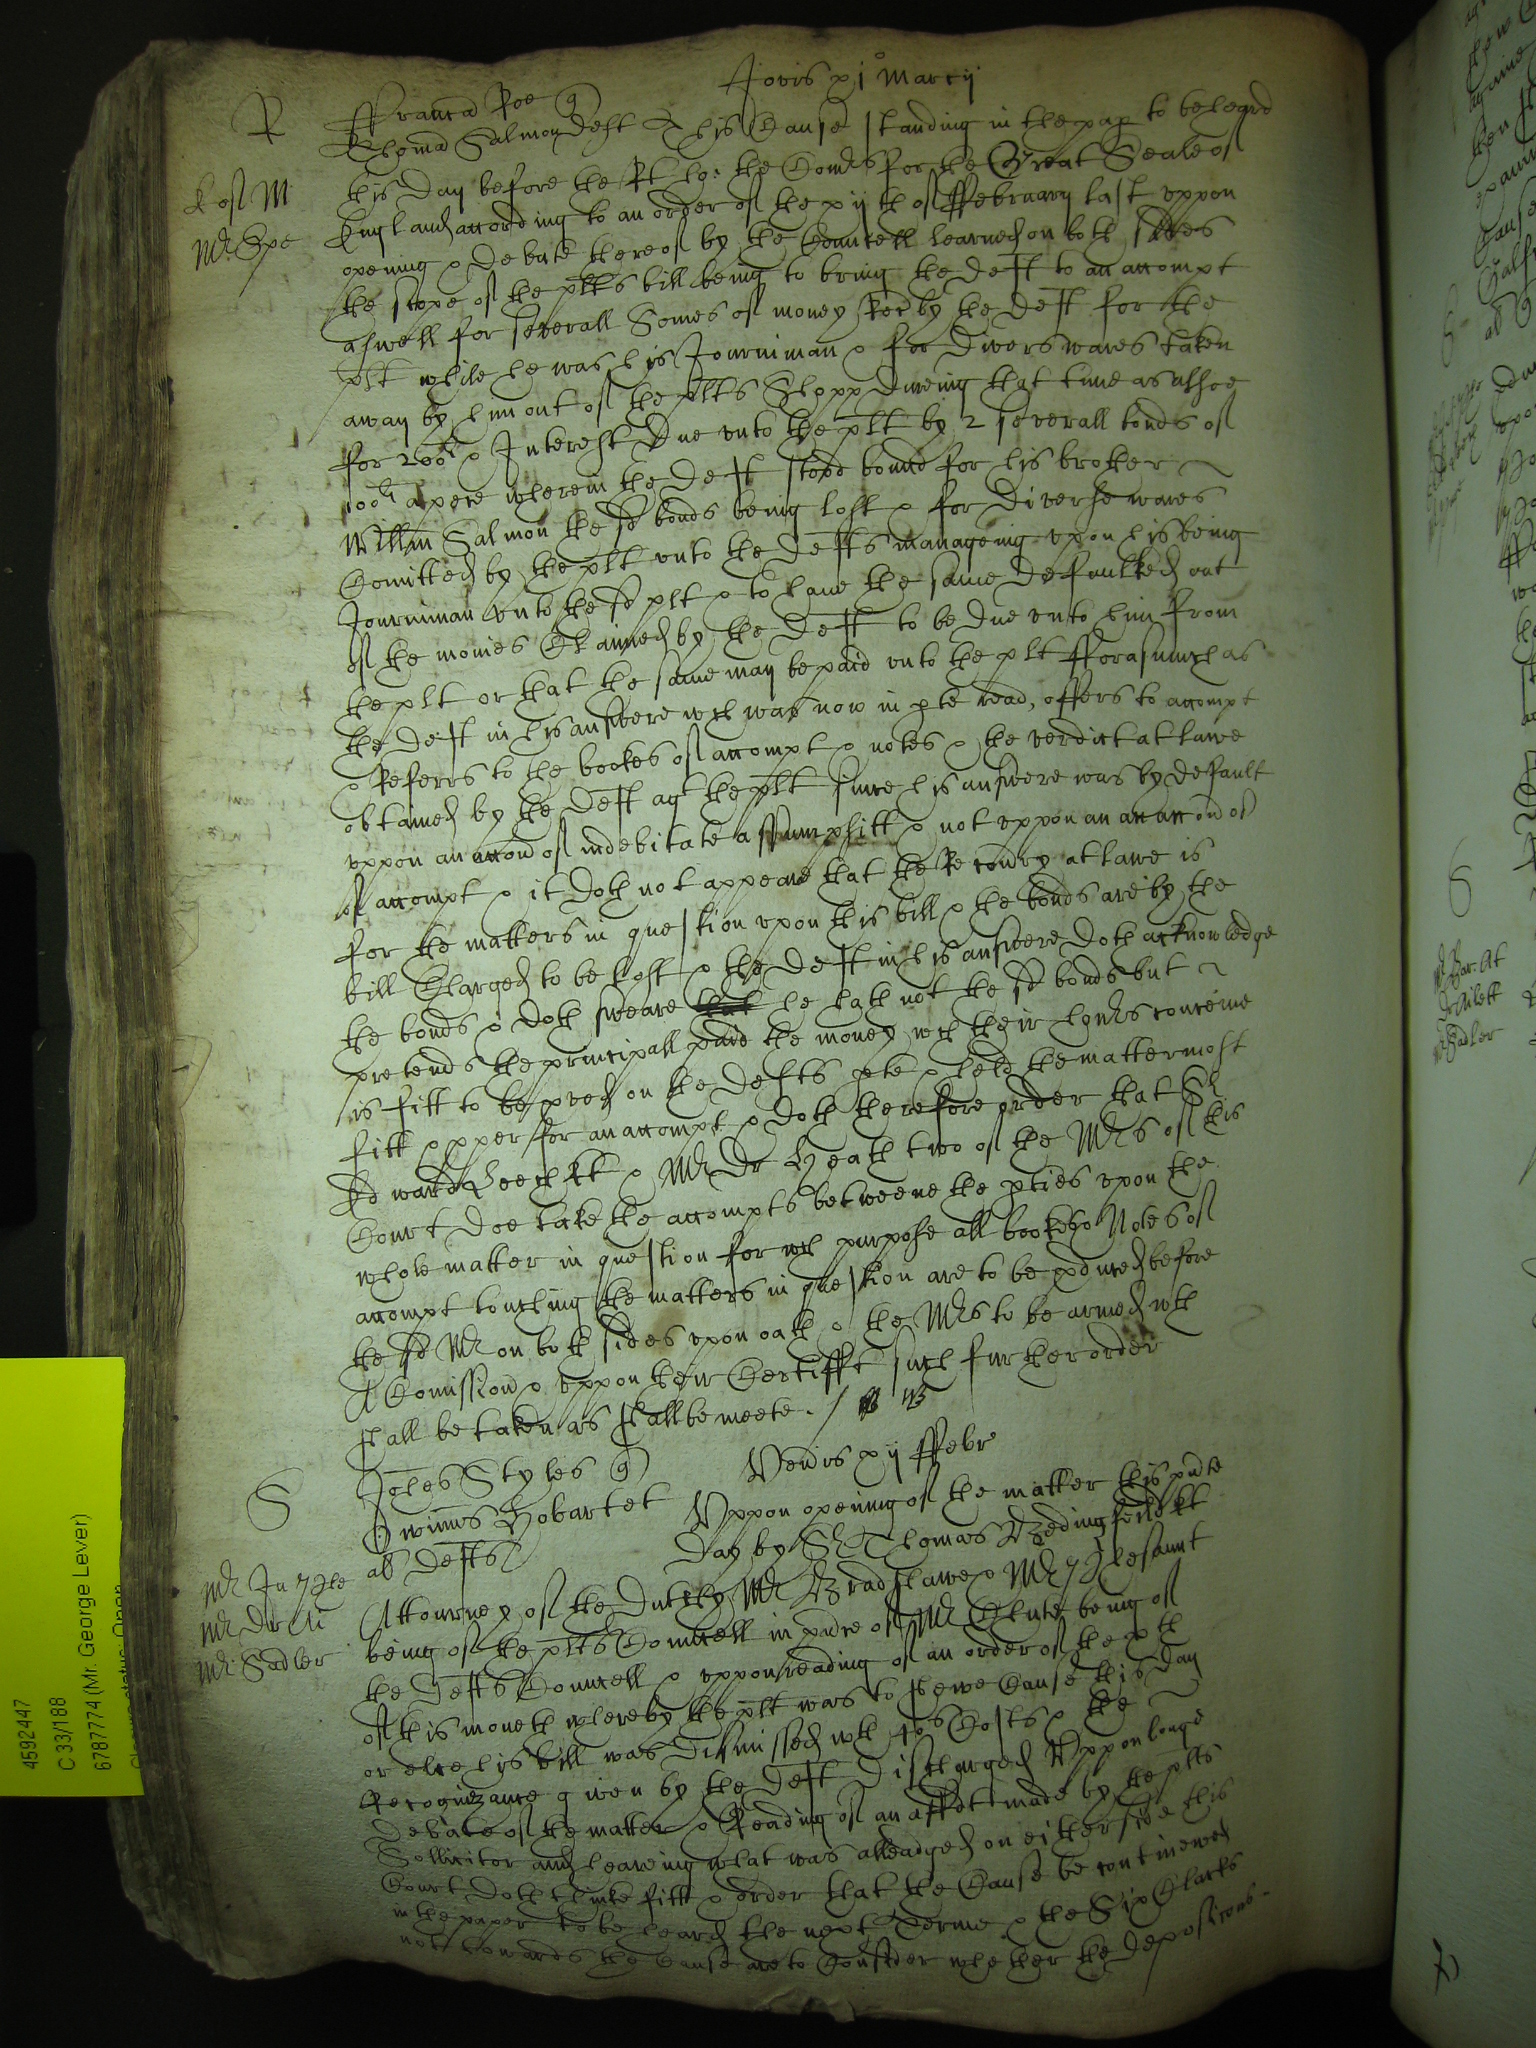 Jovis xjo Marcij
R
Francõ Roe q
Thoma Salmon Deft This Cause standing in the pap to be heard
this day before the Rt ho: the Comrs for the Great Seale of
Kof M
Mr Spe
England according to an order of the xijth of ffebruary last uppon
opening & Debate thereof by the Councell learned on both sides
the scope of the plts bill being to bring the Deft to an accompt
aswell for severall Somes of money Rec by the Deft for the
plt while he was his Journiman & for Divers wares taken
away by him out of the plts Shopp Dureing that time as alsoe
for 200li & Interest Due unto the plt by 2 severall bonds of
100li apece wherein the Deft stood bound for his brother
Willm Salmon the sd bonds being lost & for Diverse wares
Comitted by the plt unto the Defts manageing upon his being
Journiman unto the sd plt & to have the same Defaulked out
of the monies Claimed by the Deft to be Due unto him from
the plt or that the same may be paid unto the plt fforasmuch as
the Deft in his answere wch was now in pte read, offers to accompt
& Referrs to the bookes of accompt & notes & the verdict at lawe
obtained by the Deft agt the plt since his answere was by Default
uppon an accon of indebitate assumpsitt & not uppon an accon of
of accompt & it doth not appeare that the Recovery at lawe is
for the matters in question upon this bill & the bonds are by the
bill Charged to be lost & the Deft in his answere doth acknowledge
the bonds & doth sweare he hath not the sd bonds but
pretends the principall paid the money wch their honrs conceive
is fitt to be pved on the Defts pte & held the matter most
fitt & pper for an accompt & doth therefore order that Sr
Edward Leech kt & Mr Dr Heath two of the Mrs of this
Court doe take the accompts betweene the pties upon the
whole matter in question for wch purpose all bookes & Notes of
accompt touching the matters in question are to be pduced before
the sd Mr on both sides upon oath & the Mrs to be armed wth
A Comission & uppon their Certifft such further order
shall be taken as shall be meete./
S
Johes Styles q
Veneris xij ffebr
Owinus Hobart et
al Defts
Uppon opening of the matter this pnte
day by Sr Thomas Bedingfeild kt
Mr Ju
Mr Dr
Mr Sadler
Attourney of the Dutchy Mr Bradshawe & Mr Plesaunt
being of the plts Councell in pnce of Mr Chute being of
the Defts Councell & uppon reading of an order of the xth
of this moneth whereby the plt was to shewe Cause this day
or else his bill was Dismissed wth 40s Costs & the
Recognizance given by the Deft Discharged Uppon longe
Debate of the matter & Reading of an affdt made by the plts
Sollicitor and heareing what was alleadged on either side this
Court doth thinke fitt & order that the Cause be continewed
in the paper to be heard the next Terme & the Six Clarks
not towards the Cause are to Consider whether the depositions
4592447
C 33/188
6787774 (Mr. George Lever)